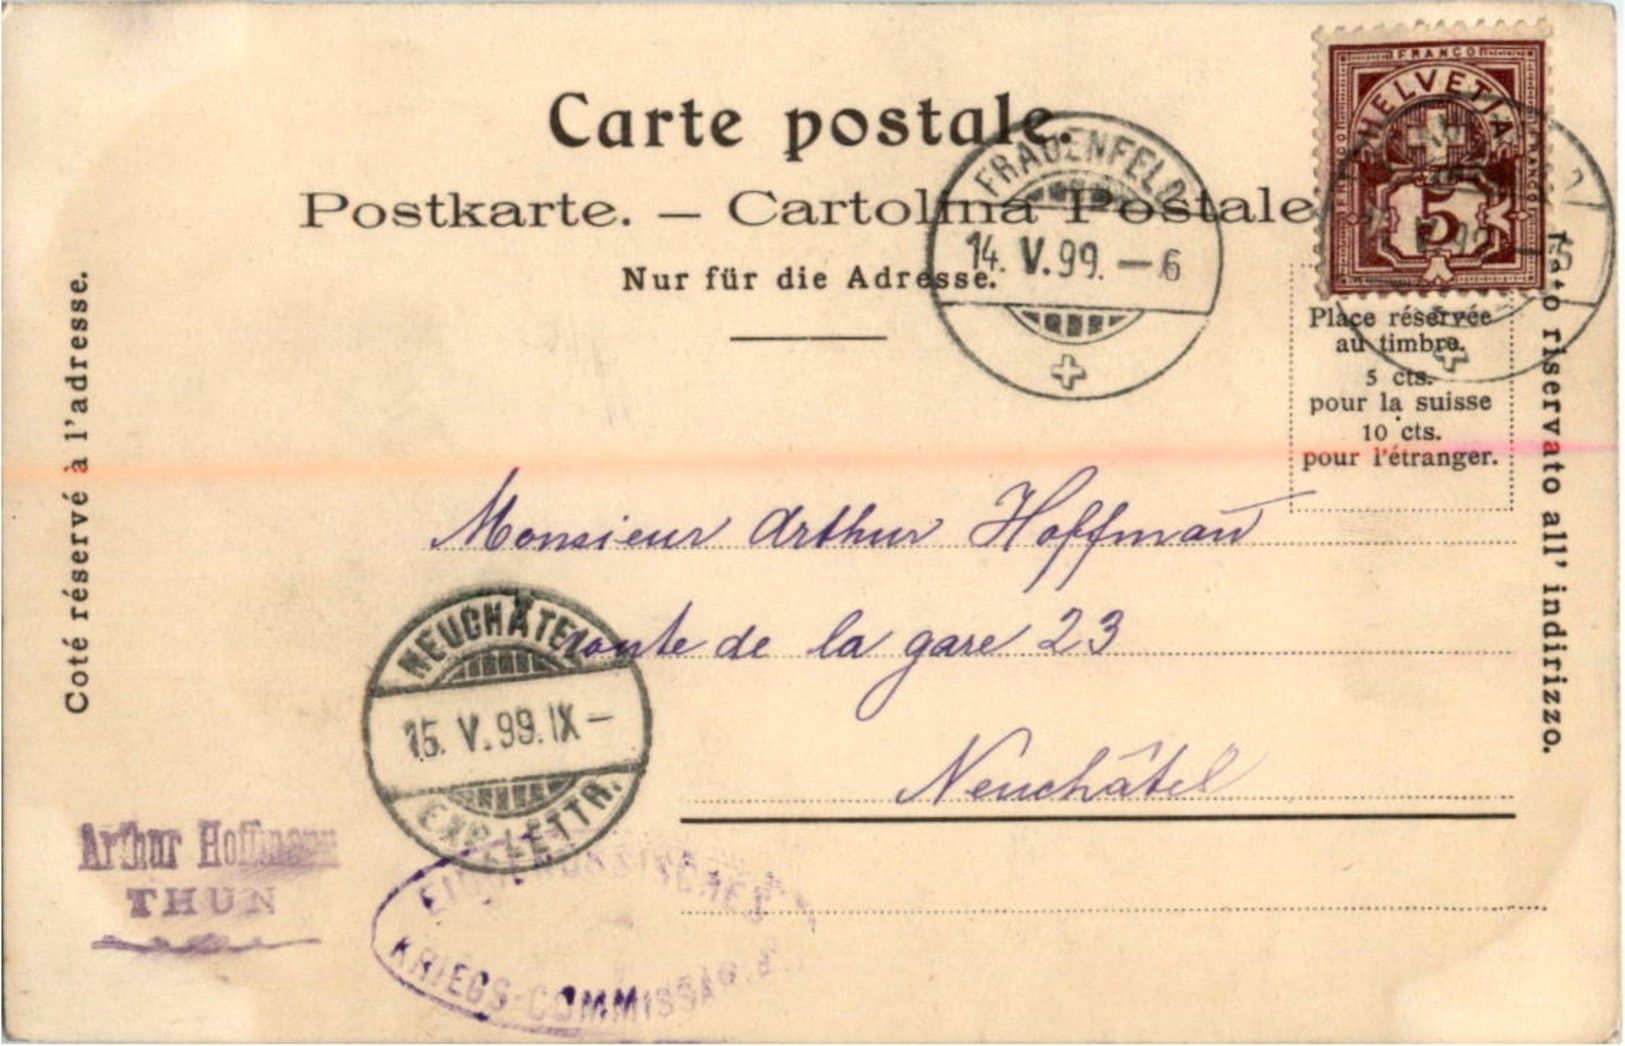 Carte postale.
Postkarte. — Cartolina Postale
Nur für die Adresse.
FRAUENFELD
14. V. 99. — 6
FRANCO
HELVETIA
FRANCO
FRANCO
5
Place réservée
au timbre.
5 cts.
pour la suisse
10 cts.
pour l'étranger.
Coté réservé à l'adresse.
riservato all' indirizzo.
Monsieur Arthur Hoffmañ
route de la gare 23
Neuchâtel
NEUCHÂTEL
15. V. 99. IX —
EXP. LETTR.
Arthur Hoffmann
THUN
EIDGENÖSSISCHES
KRIEGS-COMMISSAR